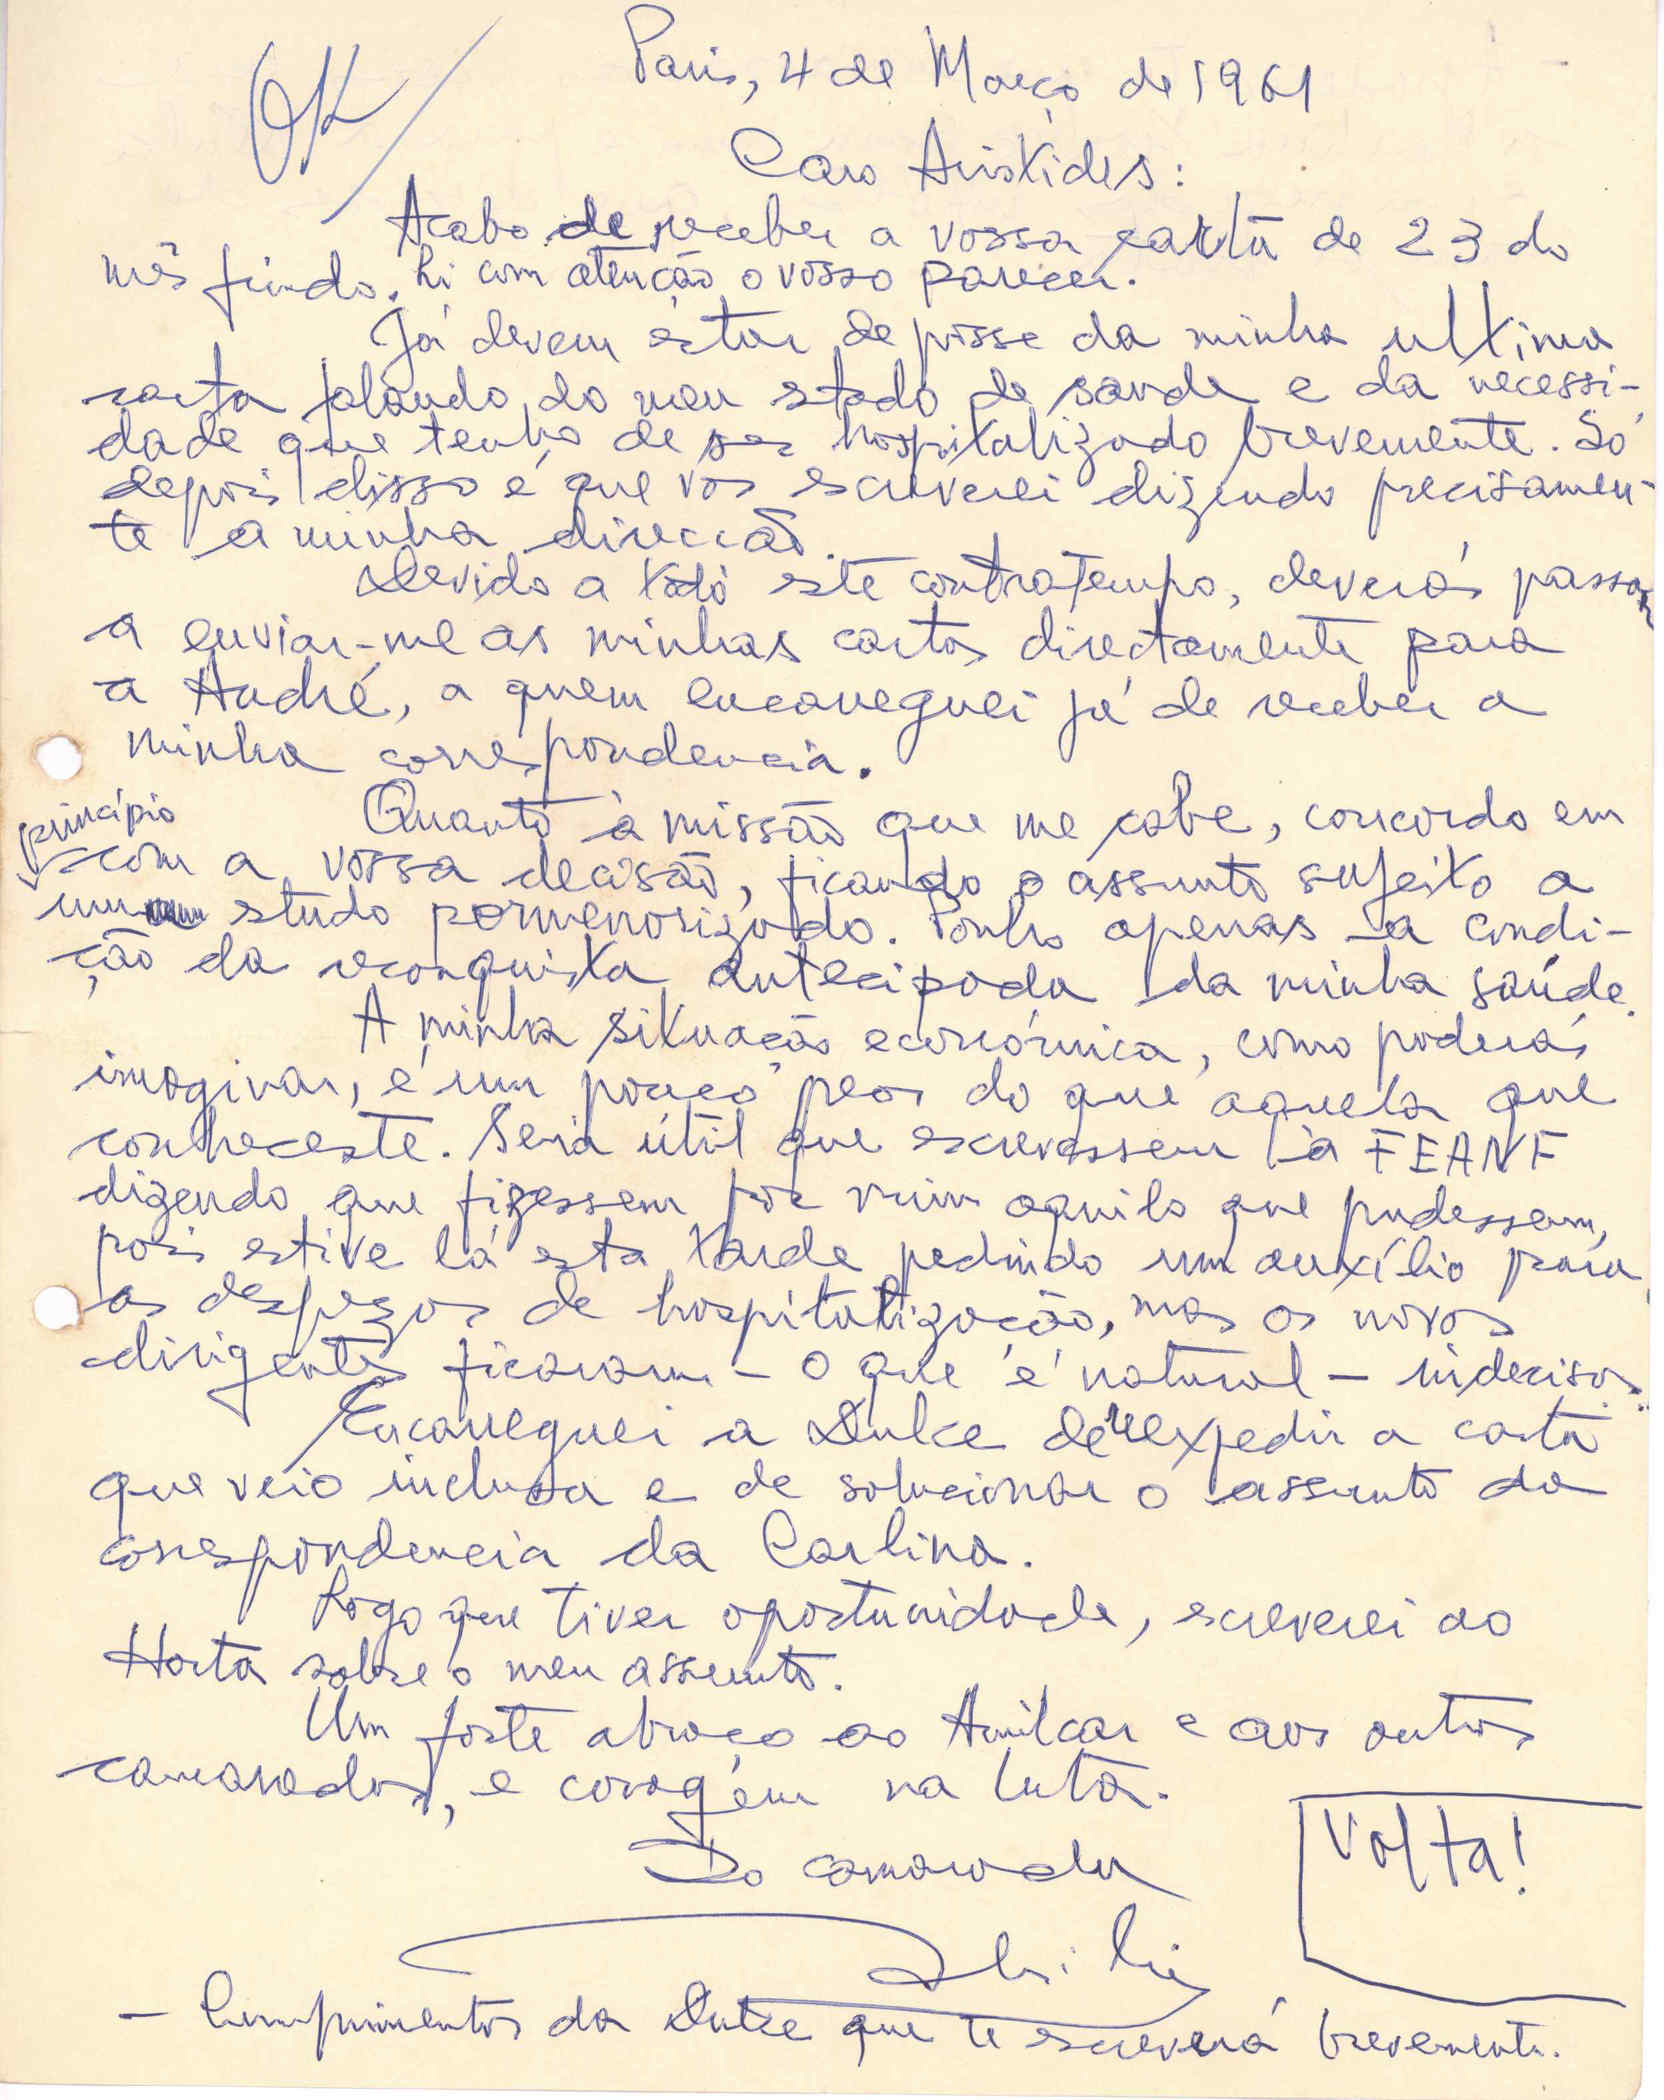 OK
Paris, 4 de Março de 1961
Caro Aristides:
Acabo de receber a vossa carta de 23 do
mês findo. Li com atenção o vosso parecer.
Já devem estar de posse da minha ultima
carta falando do meu estado de saude e da necessi-
dade que tenho de ser hospitalizado brevemente. Só
depois disso é que vos escreverei dizendo precisamen-
te a minha direcção.
Devido a todo este contratempo, deverás passar
a enviar-me as minhas cartas directamente para
a André, a quem encarreguei já de receber a
minha correspondencia.
Quanto à missão que me cabe, concordo em
princípio
com a vossa decisão, ficando o assunto sujeito a
um estudo pormenorizado. Ponho apenas a condi-
ção da reconquista antecipada da minha saúde.
A minha situação económica, como poderás
imaginar, é um pouco peor do que aquela que
conheceste. Seria útil que escrevessem à FEANF
dizendo que fizessem por mim aquilo que pudessem,
pois estive lá esta tarde pedindo um auxílio para
as despezas de hospitalização, mas os novos
dirigentes ficaram - o que é natural - indecisos.
Encarreguei a Dulce de reexpedir a carta
que veio inclusa e de solucionar o assunto da
correspondencia da Carlina.
Logo que tiver oportunidade, escreverei ao
Horta sobre o meu assunto.
Um forte abraço ao Amilcar e aos outros
camaradas, e coragem na luta.
Do camarada
Volta!
- Cumprimentos da Dulce que te escreverá brevemente.